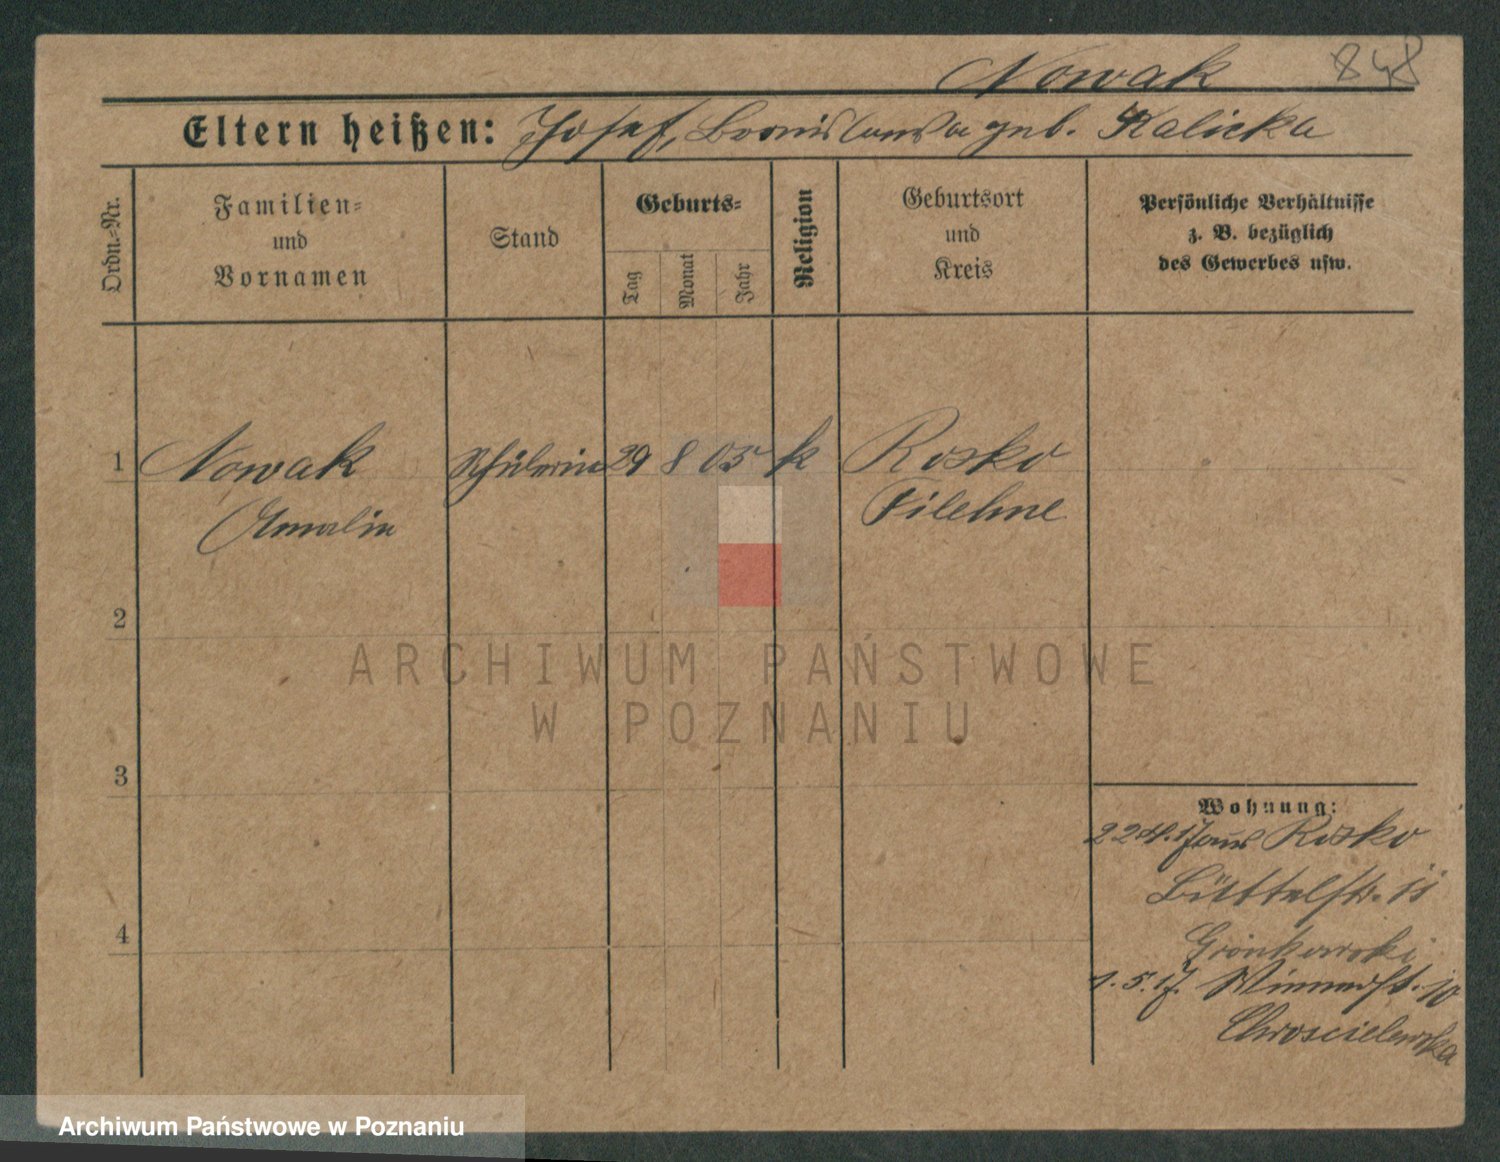 Nowak 848
Eltern heißen: Josef, Bronislawa geb. Kalicka
Ordn.-Nr.
Familien-
und
Vornamen
Stand
Geburts-
Tag
Monat
Jahr
Religion
Geburtsort
und
Kreis
Persönliche Verhältnisse
z. B. bezüglich
des Gewerbes usw.
1 Nowak Schülerin 29 8 05 k Rosko
Amalie Filehne
2
ARCHIWUM PAŃSTWOWE
W POZNANIU
3
Wohnung:
22.4.17 aus Rosko
Büttelstr. 11
Gronkowski
1.5.17.
4
Chroscielewska
Archiwum Państwowe w Poznaniu